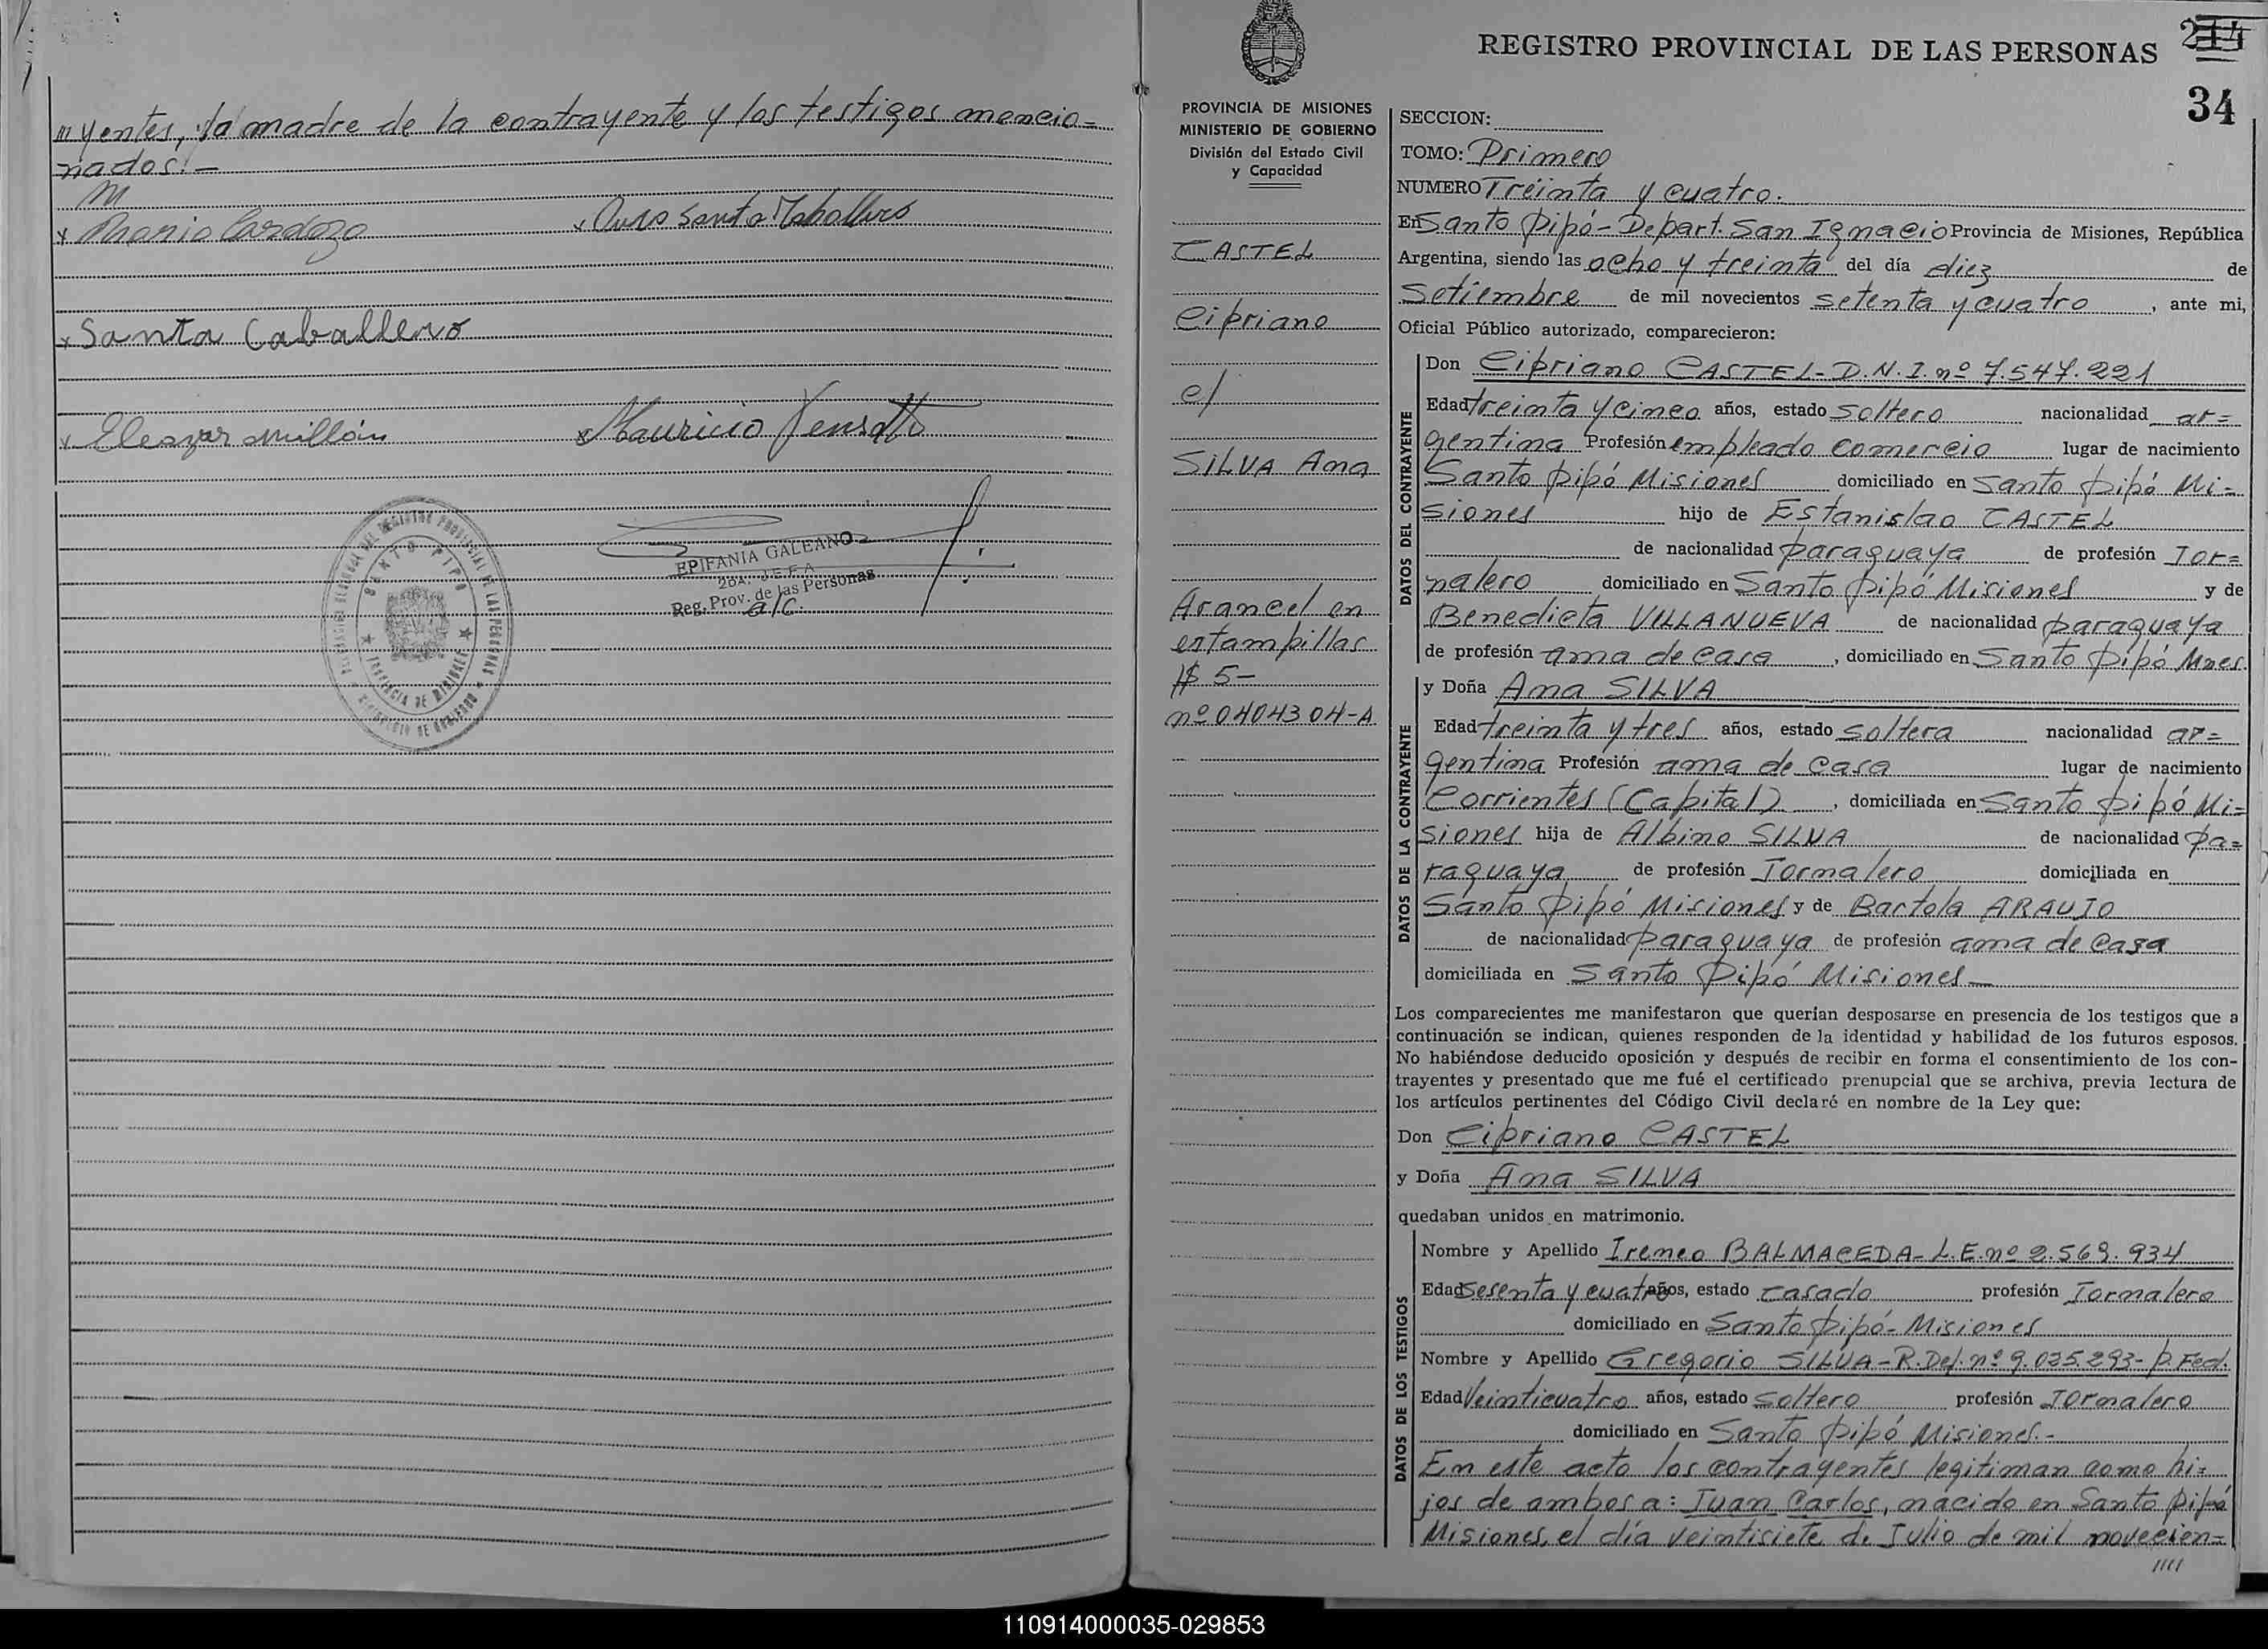 //// yentes, la madre de la contrayente y los testigos mencio=
nados!-
x Santa Caballero
x Eleazar Millán
x Mauricio
REGISTRO PROVINCIAL DE LAS PERSONAS
SANTO PIPO
PROVINCIA DE MISIONES
EPIFANIA GALEANO
2DA. JEFA
Reg. Prov. de las Personas
a/c.
REGISTRO PROVINCIAL DE LAS PERSONAS 214
34
PROVINCIA DE MISIONES
MINISTERIO DE GOBIERNO
División del Estado Civil
y Capacidad
CASTEL
Cipriano
c/
SILVA Ana
Arancel en
estampillas
$ 5-
nº 0404304-A
SECCION:
TOMO: Primero
NUMERO Treinta y cuatro.
En Santo Pipó - Depart. San Ignacio Provincia de Misiones, República
Argentina, siendo las ocho y treinta del día diez de
Setiembre de mil novecientos setenta y cuatro, ante mi,
Oficial Público autorizado, comparecieron:
DATOS DEL CONTRAYENTE
Don Cipriano CASTEL - D.N.I. nº 7.547.221
Edad treinta y cinco años, estado soltero nacionalidad ar=
gentina Profesión empleado comercio lugar de nacimiento
Santo Pipó Misiones domiciliado en Santo Pipó Mi=
siones hijo de Estanislao CASTEL
de nacionalidad paraguaya de profesión Jor=
nalero domiciliado en Santo Pipó Misiones y de
Benedicta VILLANUEVA de nacionalidad paraguaya
de profesión ama de casa, domiciliado en Santo Pipó Mnes.
DATOS DE LA CONTRAYENTE
y Doña Ana SILVA
Edad treinta y tres años, estado soltera nacionalidad ar=
gentina Profesión ama de casa lugar de nacimiento
Corrientes (Capital), domiciliada en Santo Pipó Mi=
siones hija de Albino SILVA de nacionalidad pa=
raguaya de profesión Jornalero domiciliada en
Santo Pipó Misiones y de Bartola ARAUJO
de nacionalidad paraguaya de profesión ama de casa
domiciliada en Santo Pipó Misiones
Los comparecientes me manifestaron que querían desposarse en presencia de los testigos que a
continuación se indican, quienes responden de la identidad y habilidad de los futuros esposos.
No habiéndose deducido oposición y después de recibir en forma el consentimiento de los con-
trayentes y presentado que me fué el certificado prenupcial que se archiva, previa lectura de
los artículos pertinentes del Código Civil declaré en nombre de la Ley que:
Don Cipriano CASTEL
y Doña Ana SILVA
quedaban unidos en matrimonio.
DATOS DE LOS TESTIGOS
Nombre y Apellido Ireneo BALMACEDA - L.E. nº 2.569.934
Edad sesenta y cuatro años, estado casado profesión Jornalero
domiciliado en Santo Pipó - Misiones
Nombre y Apellido Gregorio SILVA - R.Def. nº 9.025.293 - P. Fed.
Edad Veinticuatro años, estado soltero profesión Jornalero
domiciliado en Santo Pipó Misiones.-
En este acto los contrayentes legitiman como hi=
jos de ambos a: Juan Carlos, nacido en Santo Pipó
Misiones, el día veintisiete de Julio de mil novecien=
////
110914000035-029853